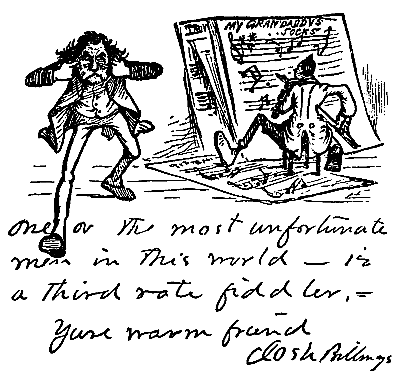 MY GRANDADDYS
SOCKS
one ov the most unfortunate
men in this world — iz
a third rate fiddler. =
Yure warm friend
Josh Billings